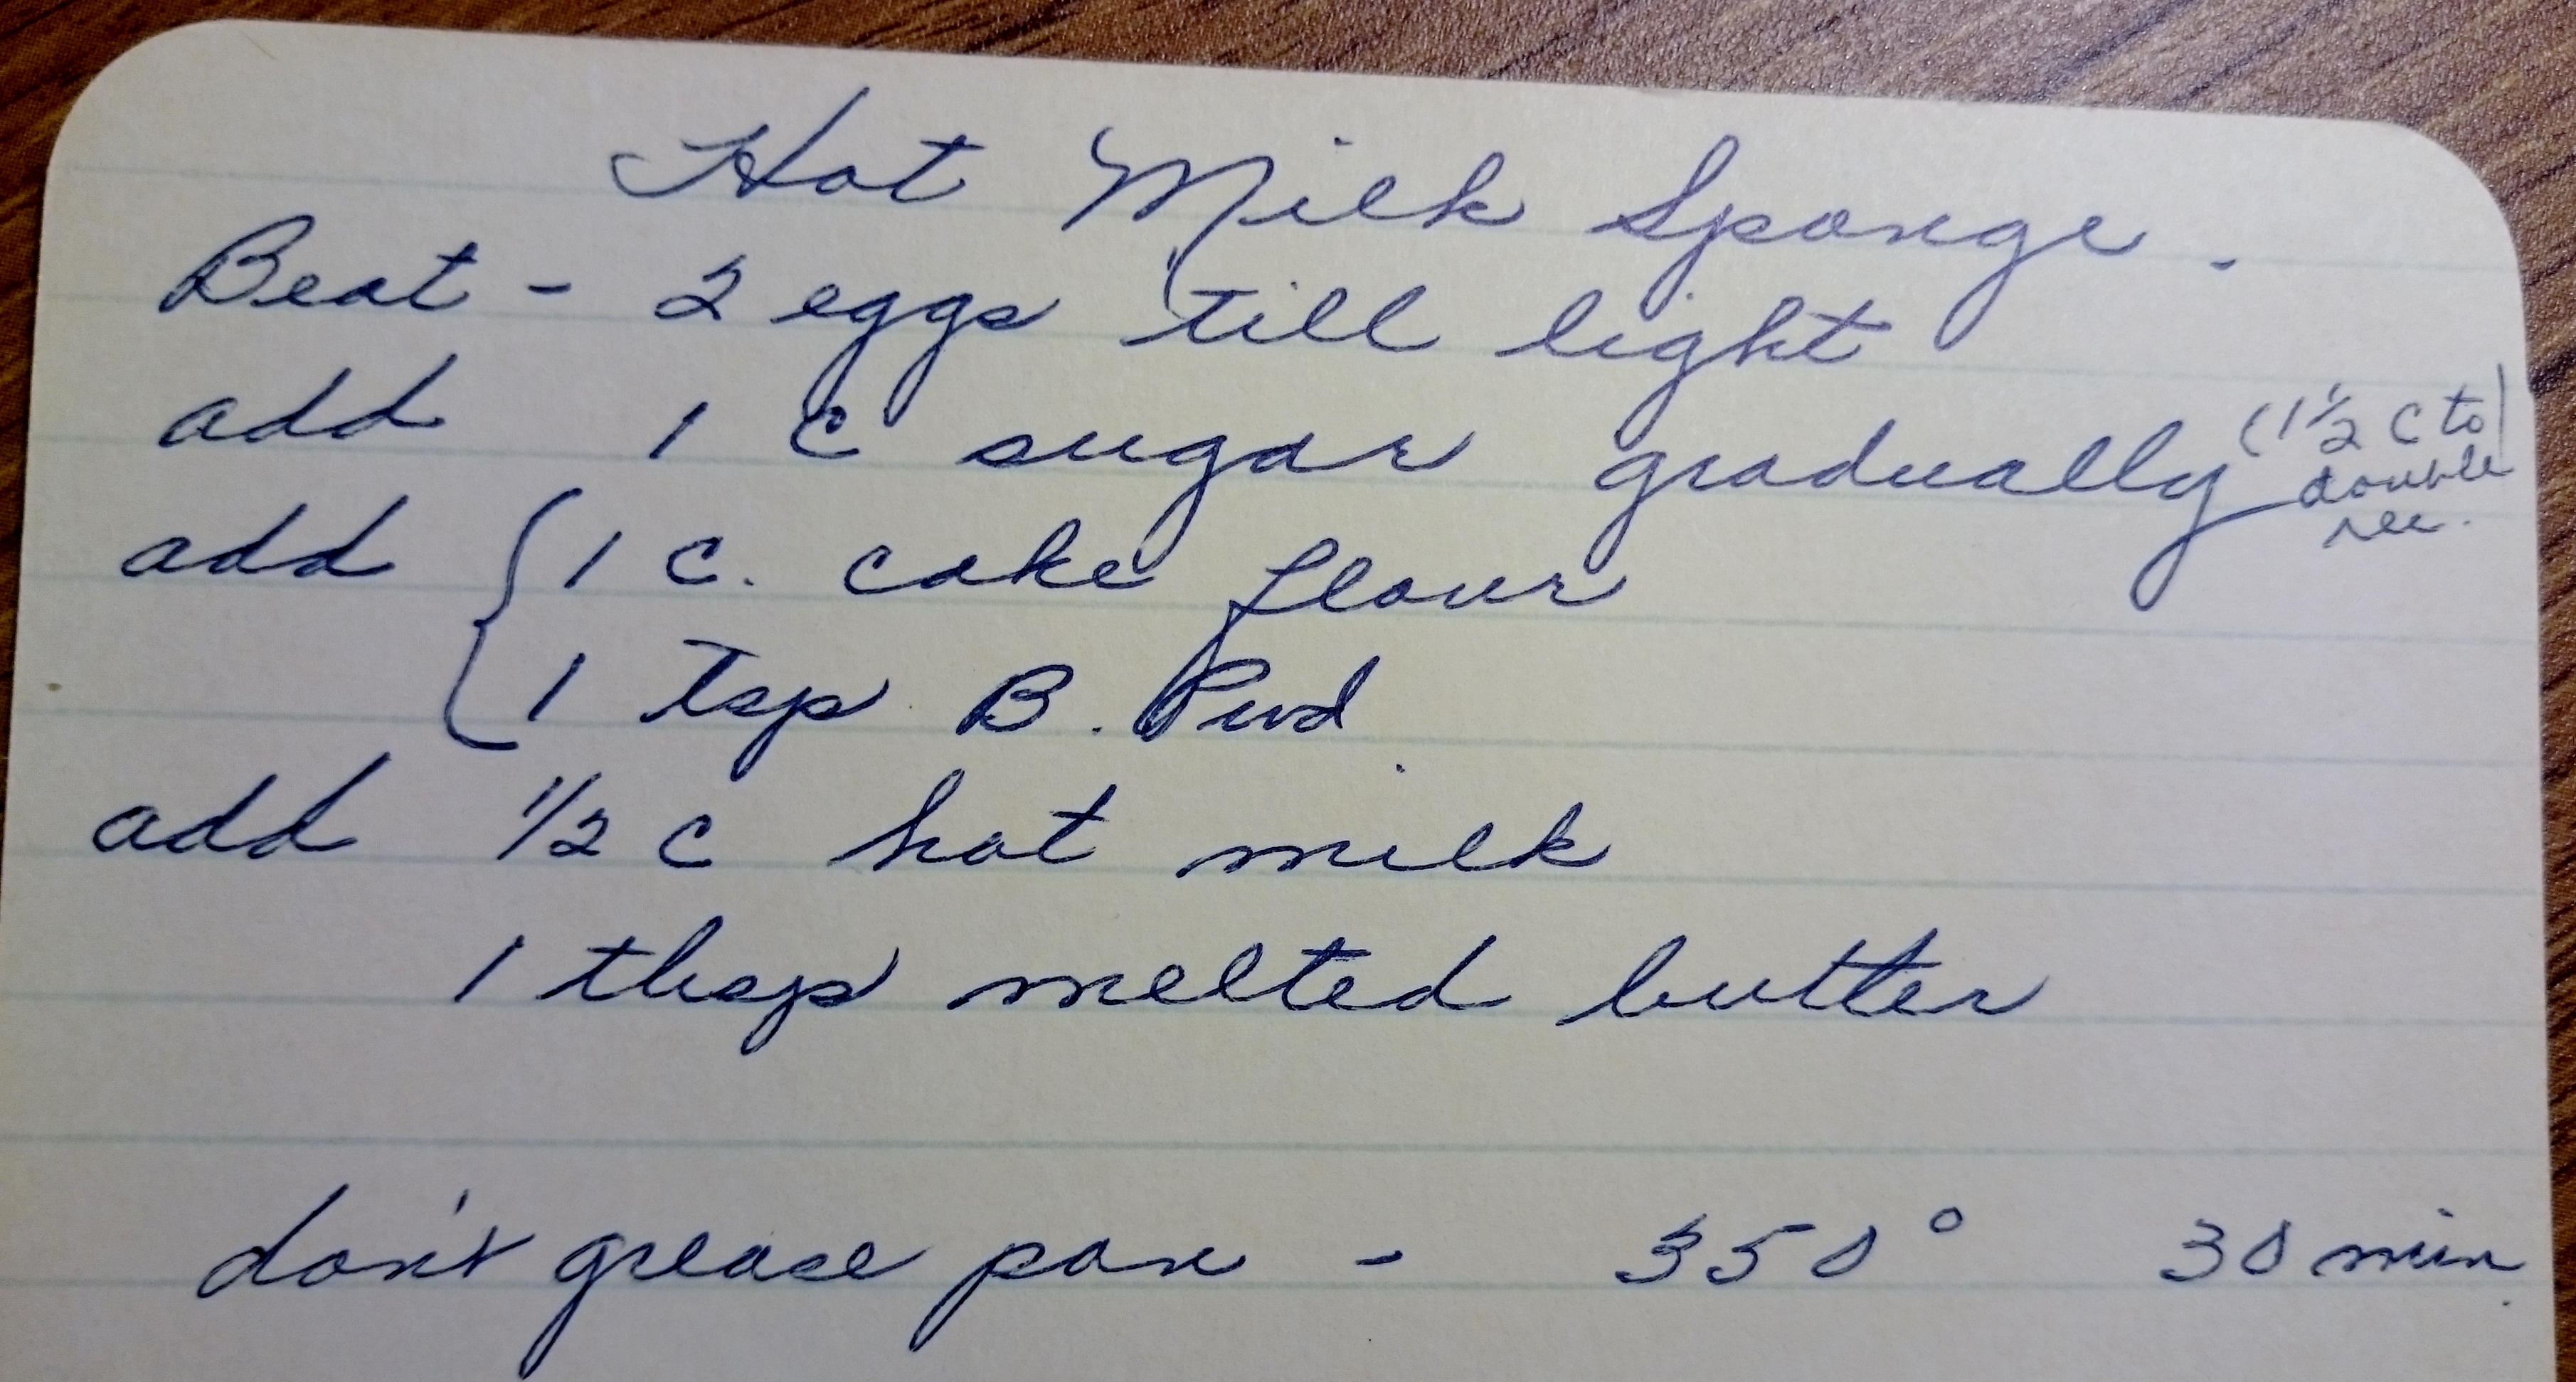 Hot Milk Sponge.
Beat - 2 eggs till light
add 1 c sugar gradually (1 1/2 c to
double
rec.
add { 1 c. cake flour
1 Tsp B. Pwd
add 1/2 c hot milk
1 tbsp melted butter
don't grease pan - 350° 30 min.